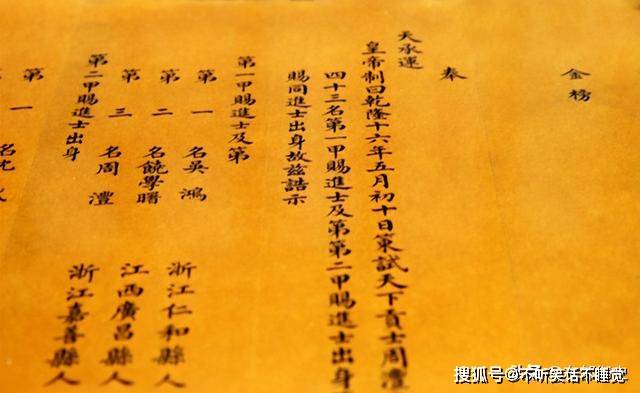 金榜
奉
天承運
皇帝制曰乾隆十六年五月初十日策試天下貢士周澧
四十三名第一甲賜進士及第第二甲賜進士出身
賜同進士出身故茲誥示
第一甲賜進士及第
第一名吳鴻 浙江仁和縣人
第二名饒學曙 江西廣昌縣人
第三名周澧 浙江嘉善縣人
第二甲賜進士出身
第一名
搜狐号@不听笑话不睡觉